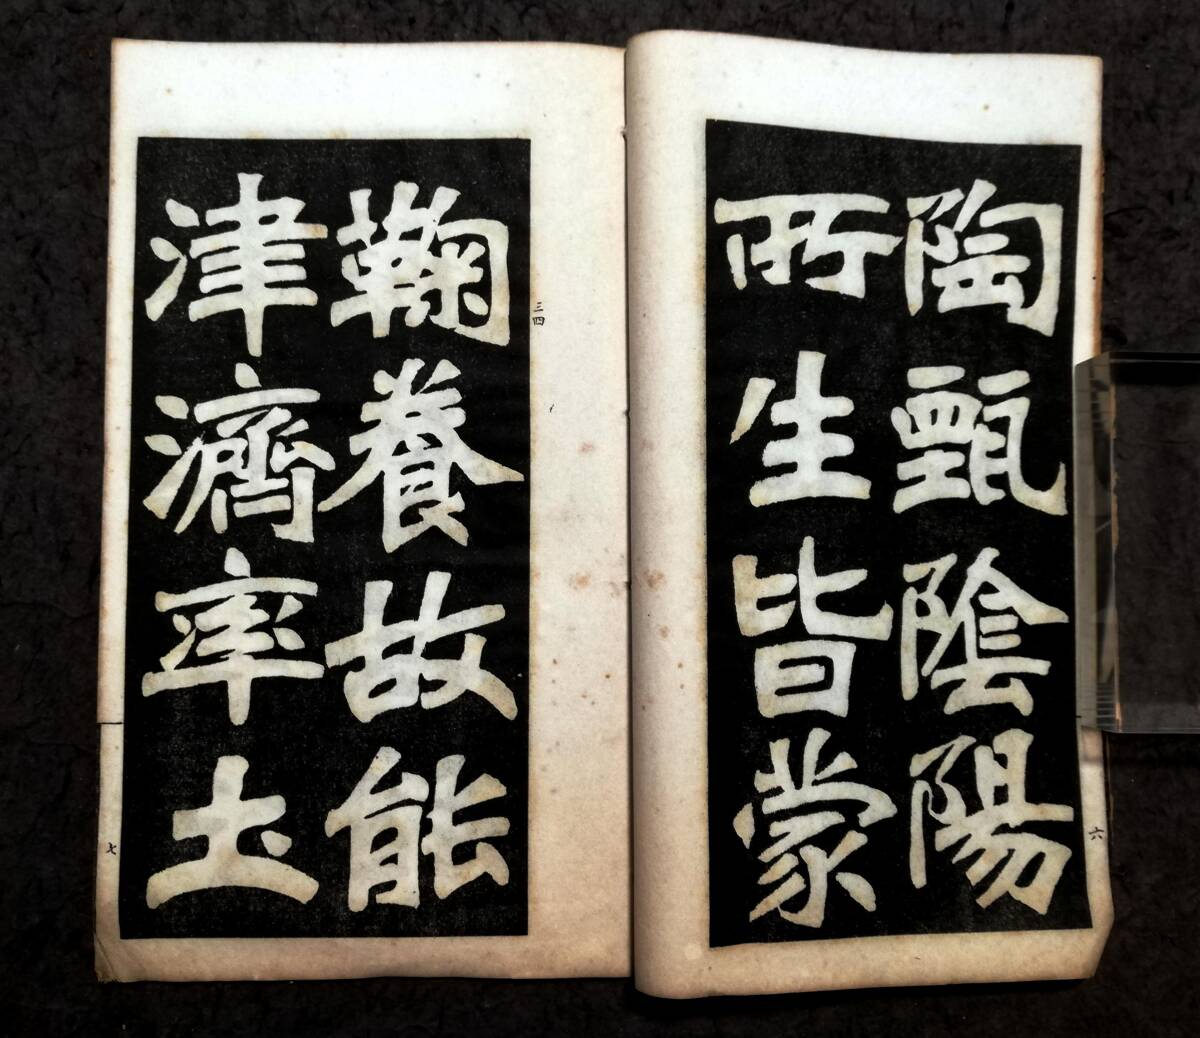 陶甄陰陽
所生皆蒙
鞠養故能
津濟率土
三四
六
七